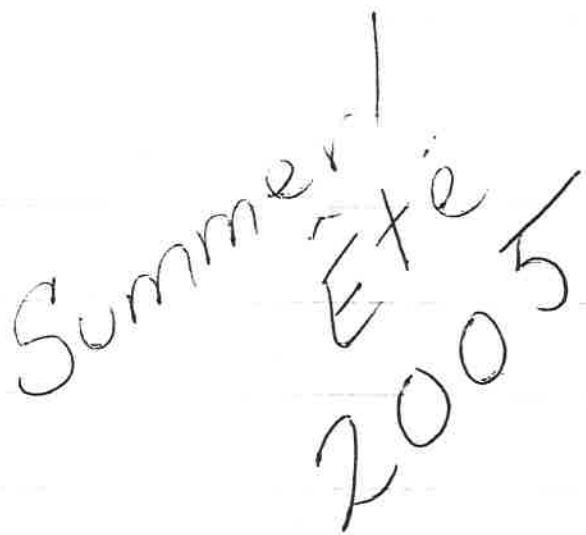 Summer /
Été
2005